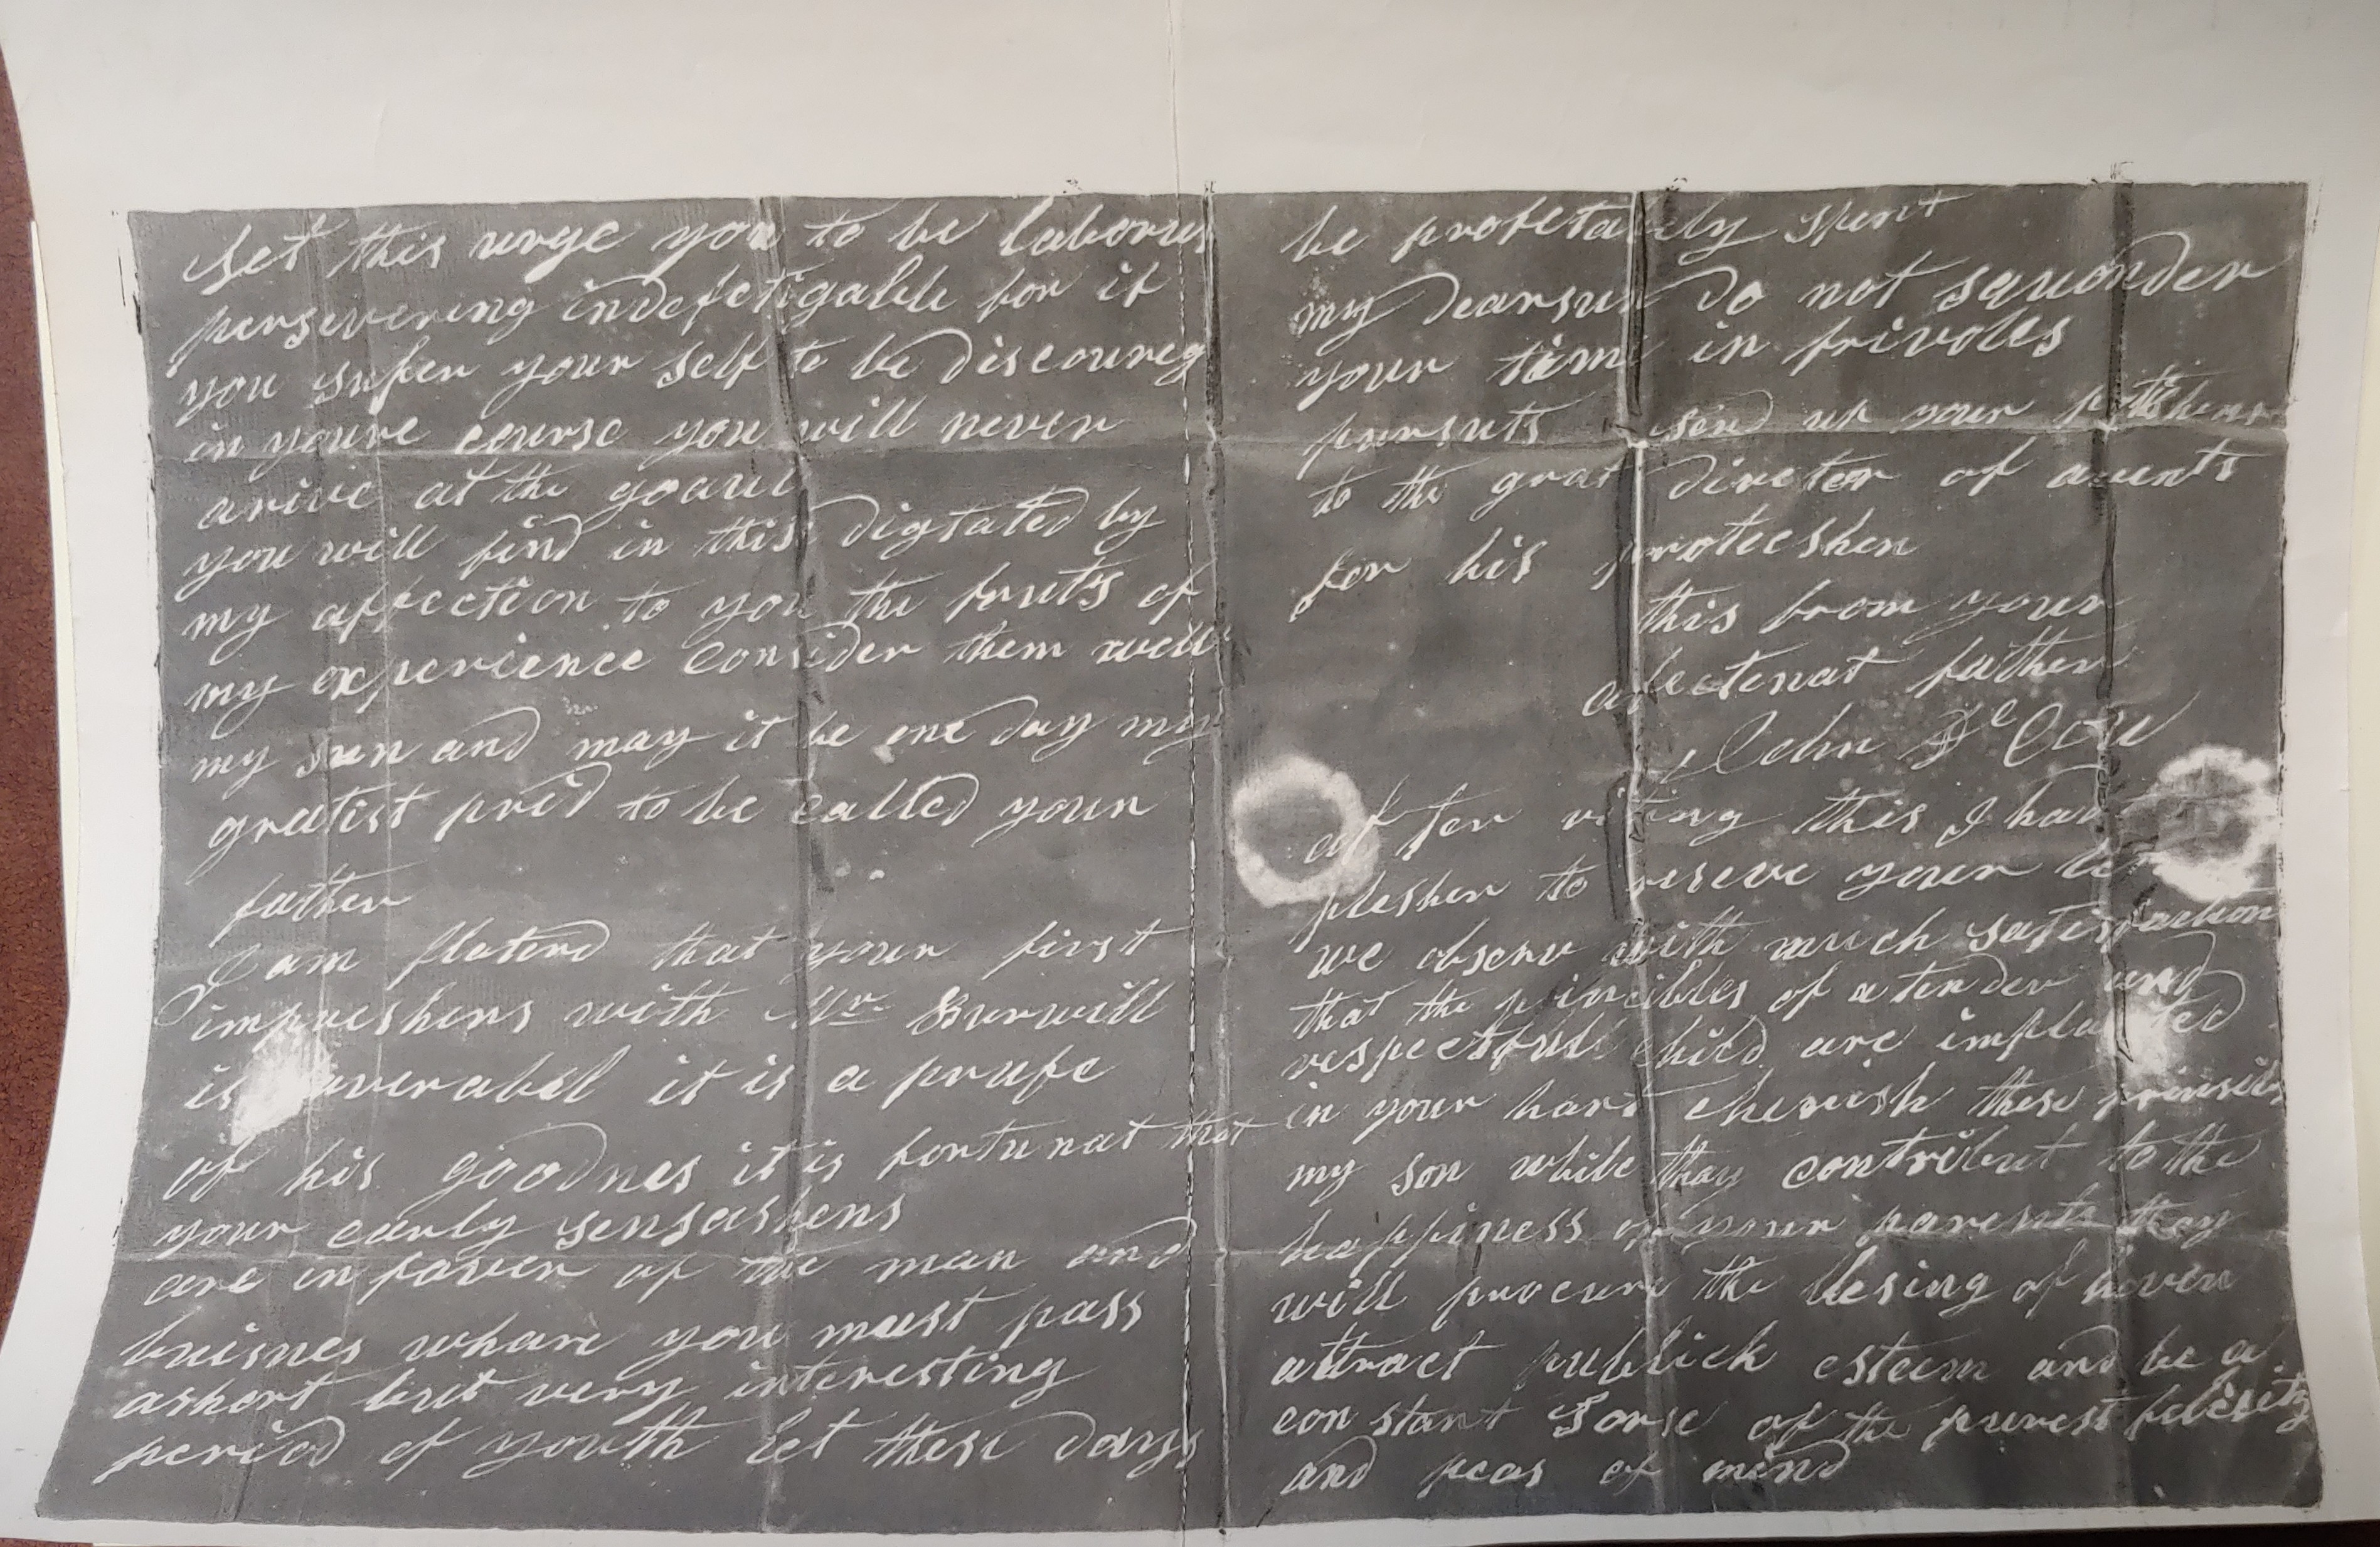 Let this urge you to be laborus
persevering indefetigable for if
you sufer your self to be discoureg
in youre course you will never
arive at the goaul
you will find in this digtated by
my affection to you the fruts of
my experience consider them well
my sun and may it be one day my
gratist prid to be called your
father
I am flaterd that your first
impreshens with Mr Burwill
is it is a prufe
of his goodnes it is fortunat that
your early sensashens
are in faver of the man and
buisnes whare you must pass
ashort but very interesting
period of youth let these days
be profetably spent
my dear sun do not squonder
your time in frivoles
pursuts send up your
to the grat director of avents
for his proteeshen
this from your
afectenat father
John De Cou
after riting this I had
plesher to reseve your
we observ with much satisfaction
that the princibles of a tender and
respectfull child are implanted
in your hart cherish these
my son while thay contribut to the
happiness of your parents they
will procure the blesing of heven
attract publick esteem and be a
constant sorse of the purest felicity
and peas of mind